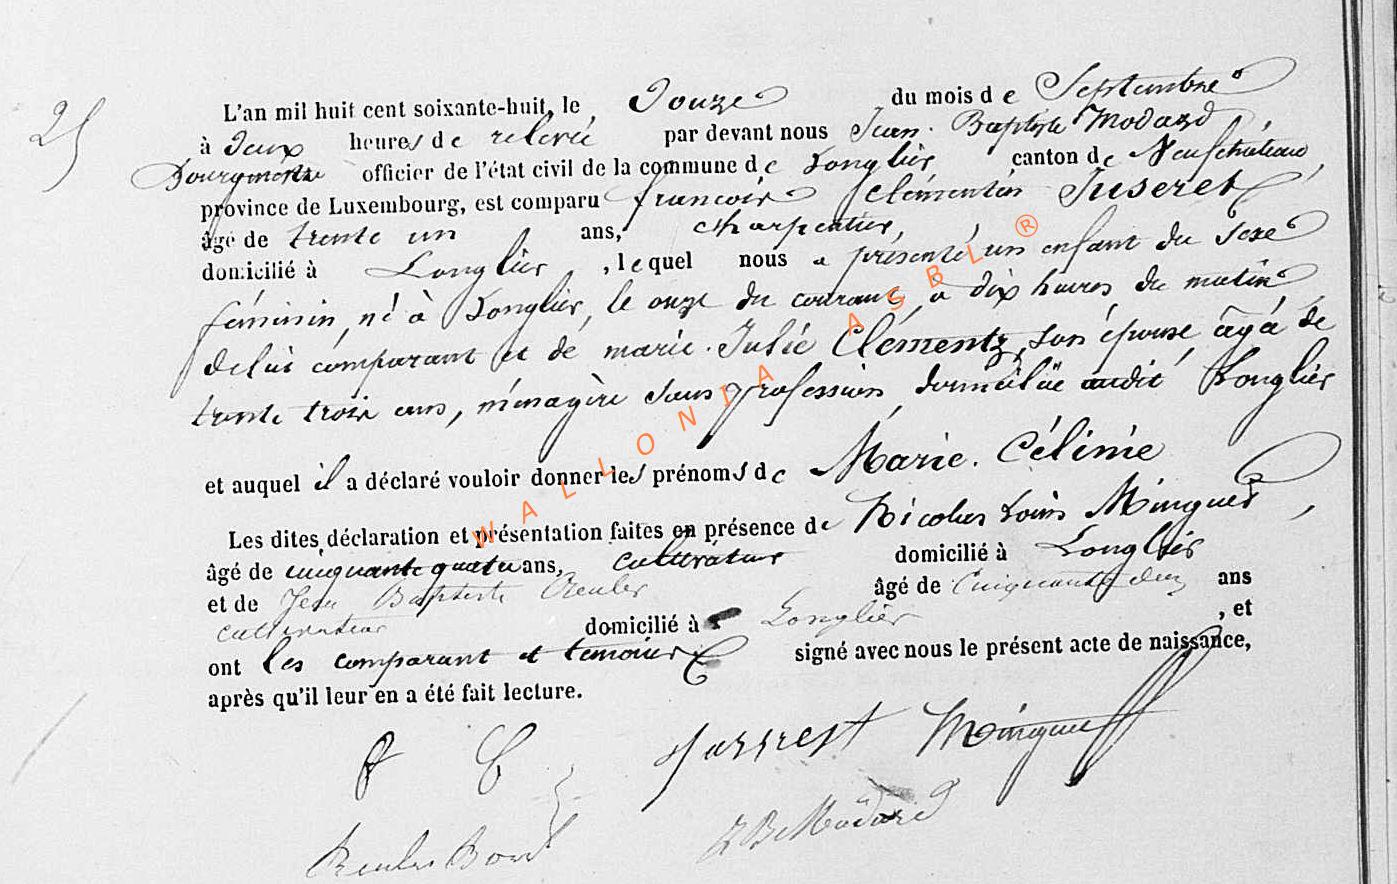 25
L'an mil huit cent soixante-huit, le Douze du mois de Septembre
à Deux heures de relevée par devant nous Jean-Baptiste Modard
Bourgmestre officier de l'état civil de la commune de Longlier canton de Neufchâteau,
province de Luxembourg, est comparu françois Clémentin Juseret
âgé de trente un ans, charpentier,
domicilié à Longlier, lequel nous a présenté un enfant du sexe
féminin, né à Longlier, le onze du courant, à dix heures du matin,
de lui comparant et de marie-Julie Clémentz, son épouse âgée de
trente trois ans, ménagère sans profession, domiciliée audit Longlier
et auquel il a déclaré vouloir donner les prénoms de Marie-Célinie
Les dites déclaration et présentation faites en présence de Nicolas Louis Minguet,
âgé de cinquante quatre ans, cultivateur domicilié à Longlier
et de Jean Baptiste Reuler âgé de Cinquante deux ans
cultivateur domicilié à Longlier, et
ont les comparant et temoins signé avec nous le présent acte de naissance,
après qu'il leur en a été fait lecture.
f C Jusseret Minguet
Reuler JBModard
WALLONIA ASBL ®